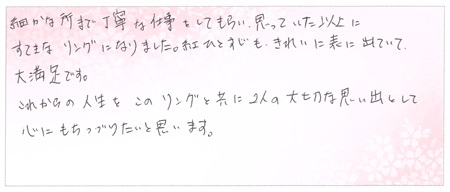 細かな所まで丁寧な仕事をしてもらい、思っていた以上に
すてきなリングになりました。紅ひとすじも、きれいに表に出ていて、
大満足です。
これからの人生をこのリングと共に2人の大切な思い出として
心にもちつづけたいと思います。